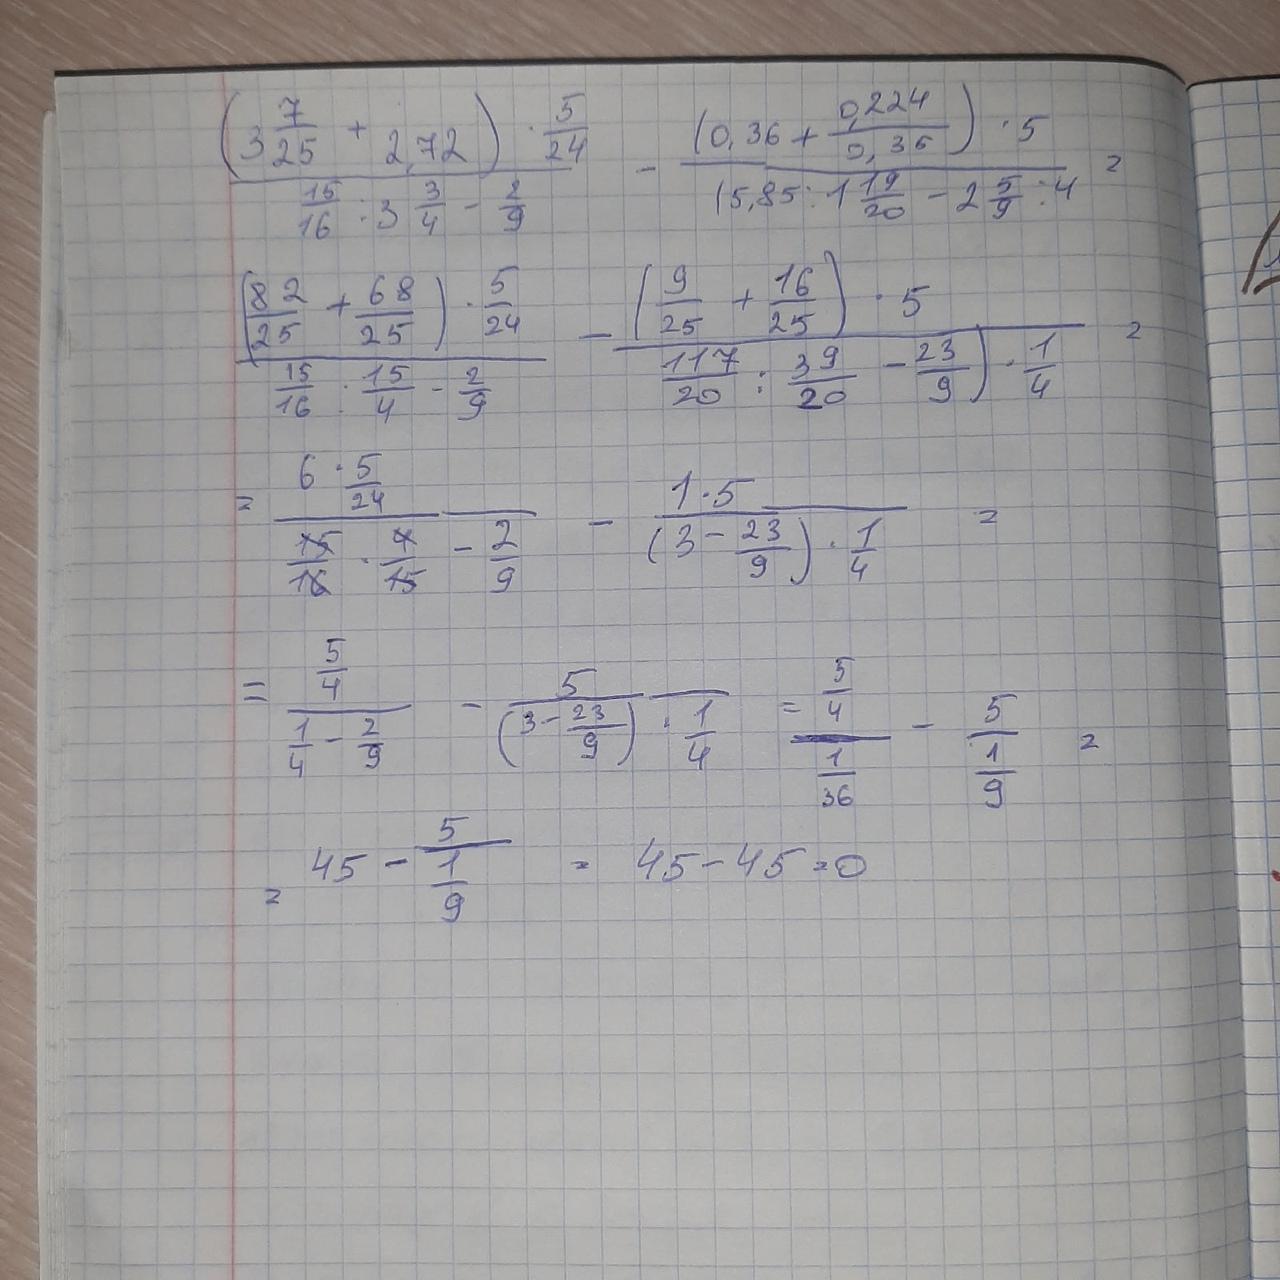 (3 7/25 + 2,72) · 5/24 / (15/16 : 3 3/4 - 2/9) - (0,36 + 0,224/0,35) · 5 / (5,85 : 1 19/20 - 2 5/9 : 4 =
(82/25 + 68/25) · 5/24 / (15/16 : 15/4 - 2/9) - (9/25 + 16/25) · 5 / 117/20 : 39/20 - 23/9) · 1/4 =
= 6 · 5/24 / (15/16 · 4/15 - 2/9) - 1 · 5 / (3 - 23/9) · 1/4 =
= 5/4 / (1/4 - 2/9) - 5 / (3 - 23/9) · 1/4 = 5/4 / 1/36 - 5 / 1/9 =
= 45 - 5 / 1/9 = 45 - 45 = 0